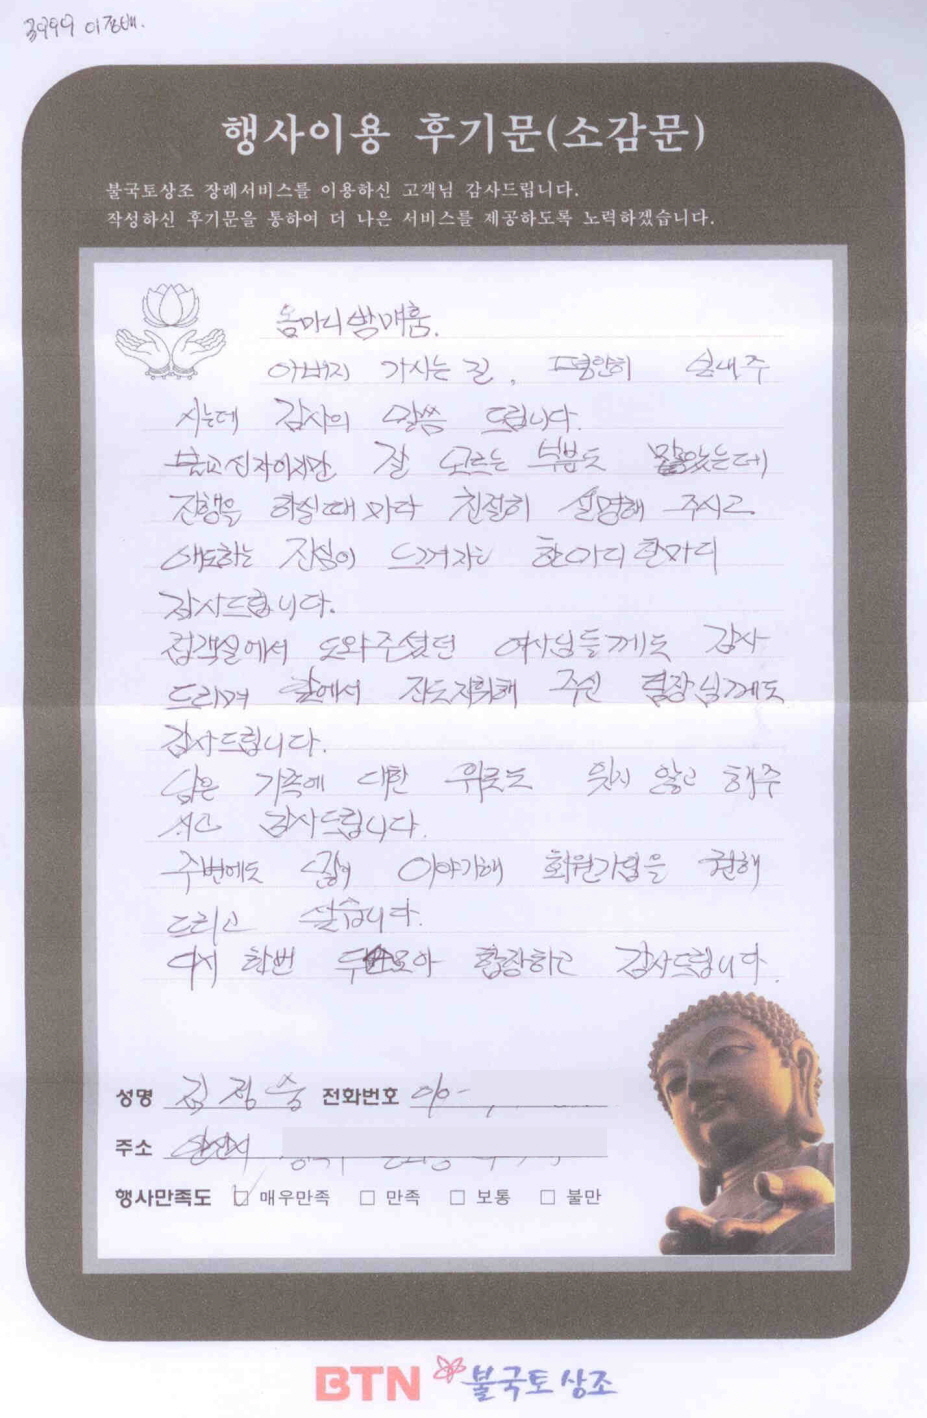 행사이용 후기문(소감문)
불국토상조 장례서비스를 이용하신 고객님 감사드립니다.
작성하신 후기문을 통하여 더 나은 서비스를 제공하도록 노력하겠습니다.
옴마니반메훔.
아버지 가시는 길, 평안히 보내주
시는데 감사의 말씀 드립니다.
불교신자이지만 잘 모르는 부분도 많았는데
진행을 하실때 마다 친절히 설명해 주시고
애도하는 진심이 느껴지는 한마디 한마디
감사드립니다.
접객실에서 도와주셨던 여사님들께도 감사
드리며 앞에서 진두지휘해 주신 팀장님께도
감사드립니다.
남은 가족에 대한 위로도 잊지 않고 해주
시고 감사드립니다.
주변에도 이야기해 회원가입을 권해
드리고 싶습니다.
다시 한번 두손모아 합장하고 감사드립니다.
성명 김정숭 전화번호 010-
주소 안산시
행사만족도 매우만족 만족 보통 불만
BTN 불국토상조